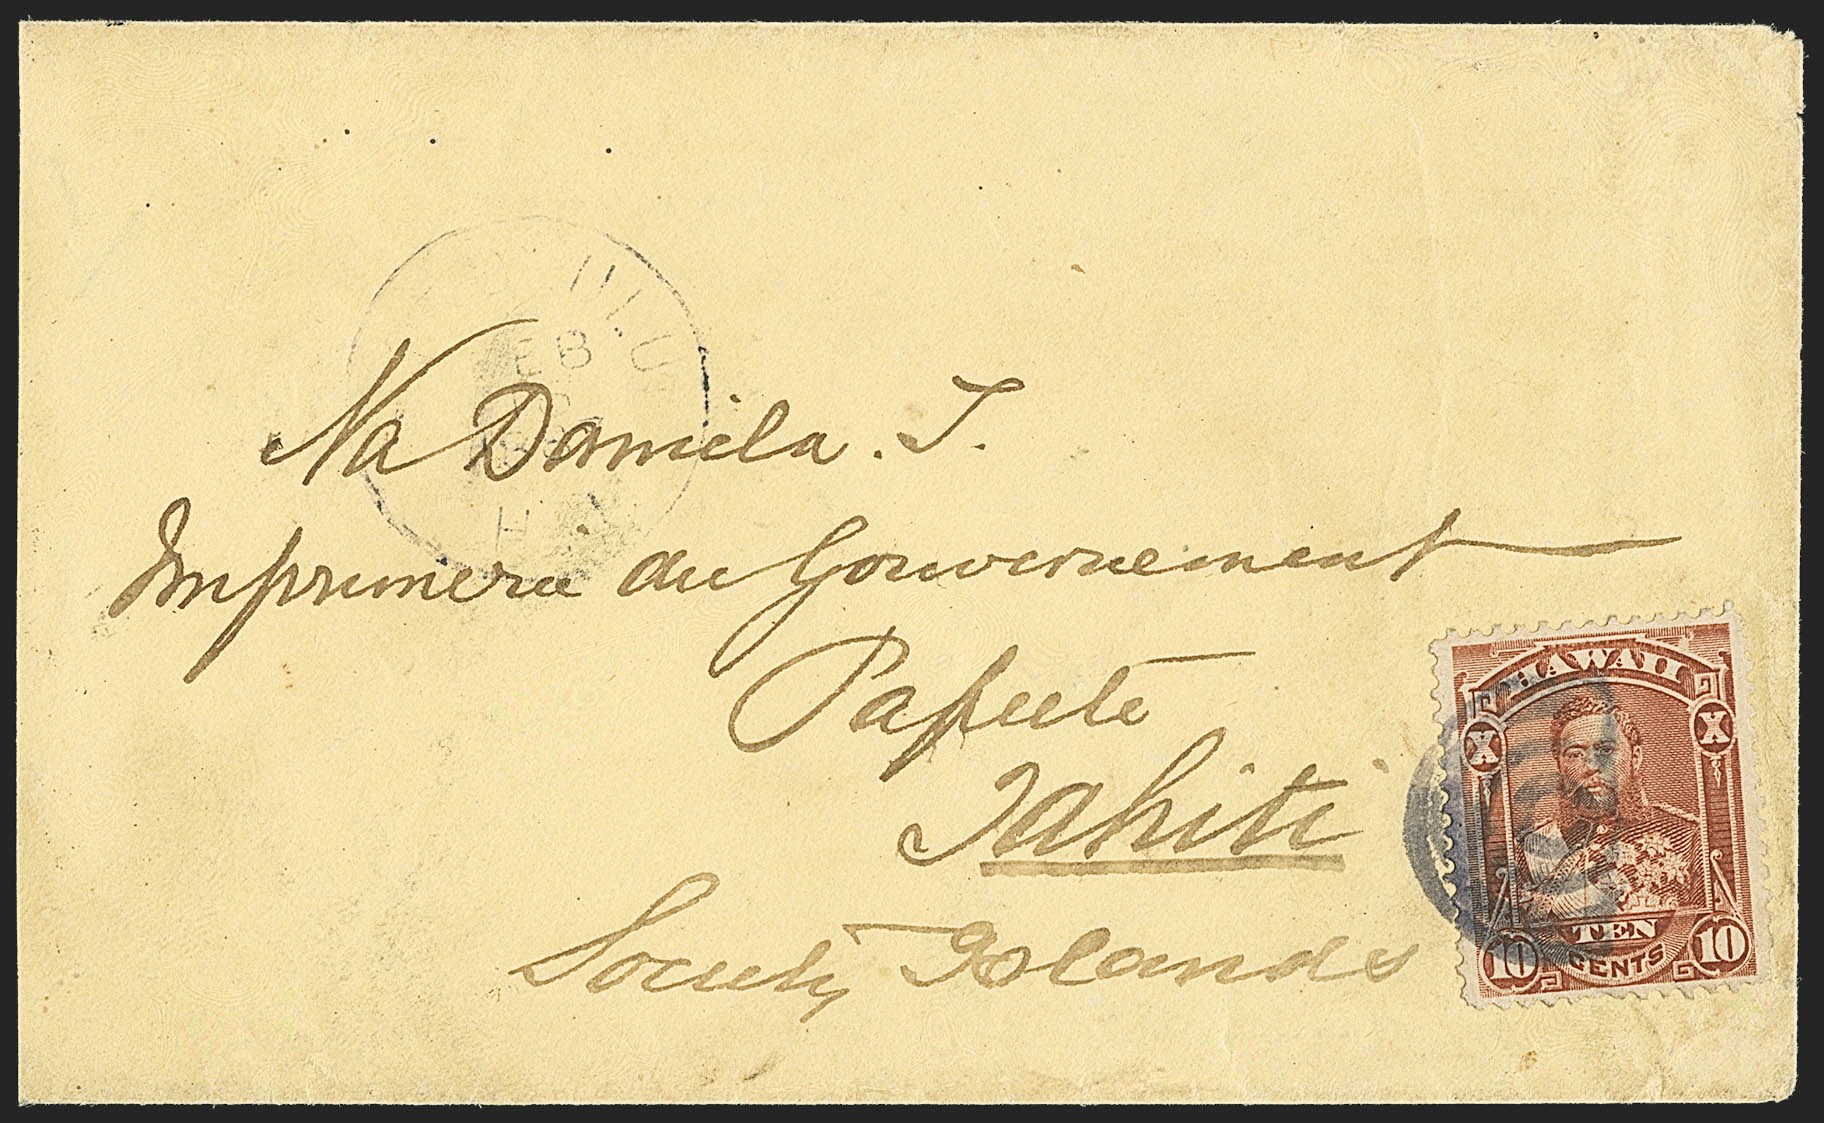 Na Daniela. T.
Imprimerie du Gouvernement
Papeete
Tahiti
Society Islands
EB
H
HAWAII
X X
TEN
CENTS
10 10